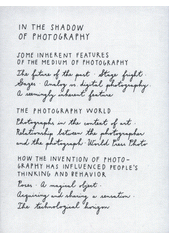 IN THE SHADOW
OF PHOTOGRAPHY
SOME INHERENT FEATURES
OF THE MEDIUM OF PHOTOGRAPHY
The future of the past · Stage fright ·
Gazes · Analog vs digital photography ·
A seemingly inherent feature
THE PHOTOGRAPHY WORLD
Photographs in the context of art ·
Relationship between the photographer
and the photograph · World Press Photo
HOW THE INVENTION OF PHOTO-
GRAPHY HAS INFLUENCED PEOPLE'S
THINKING AND BEHAVIOR
Poses · A magical object ·
Acquiring and sharing a sensation ·
The technological horizon